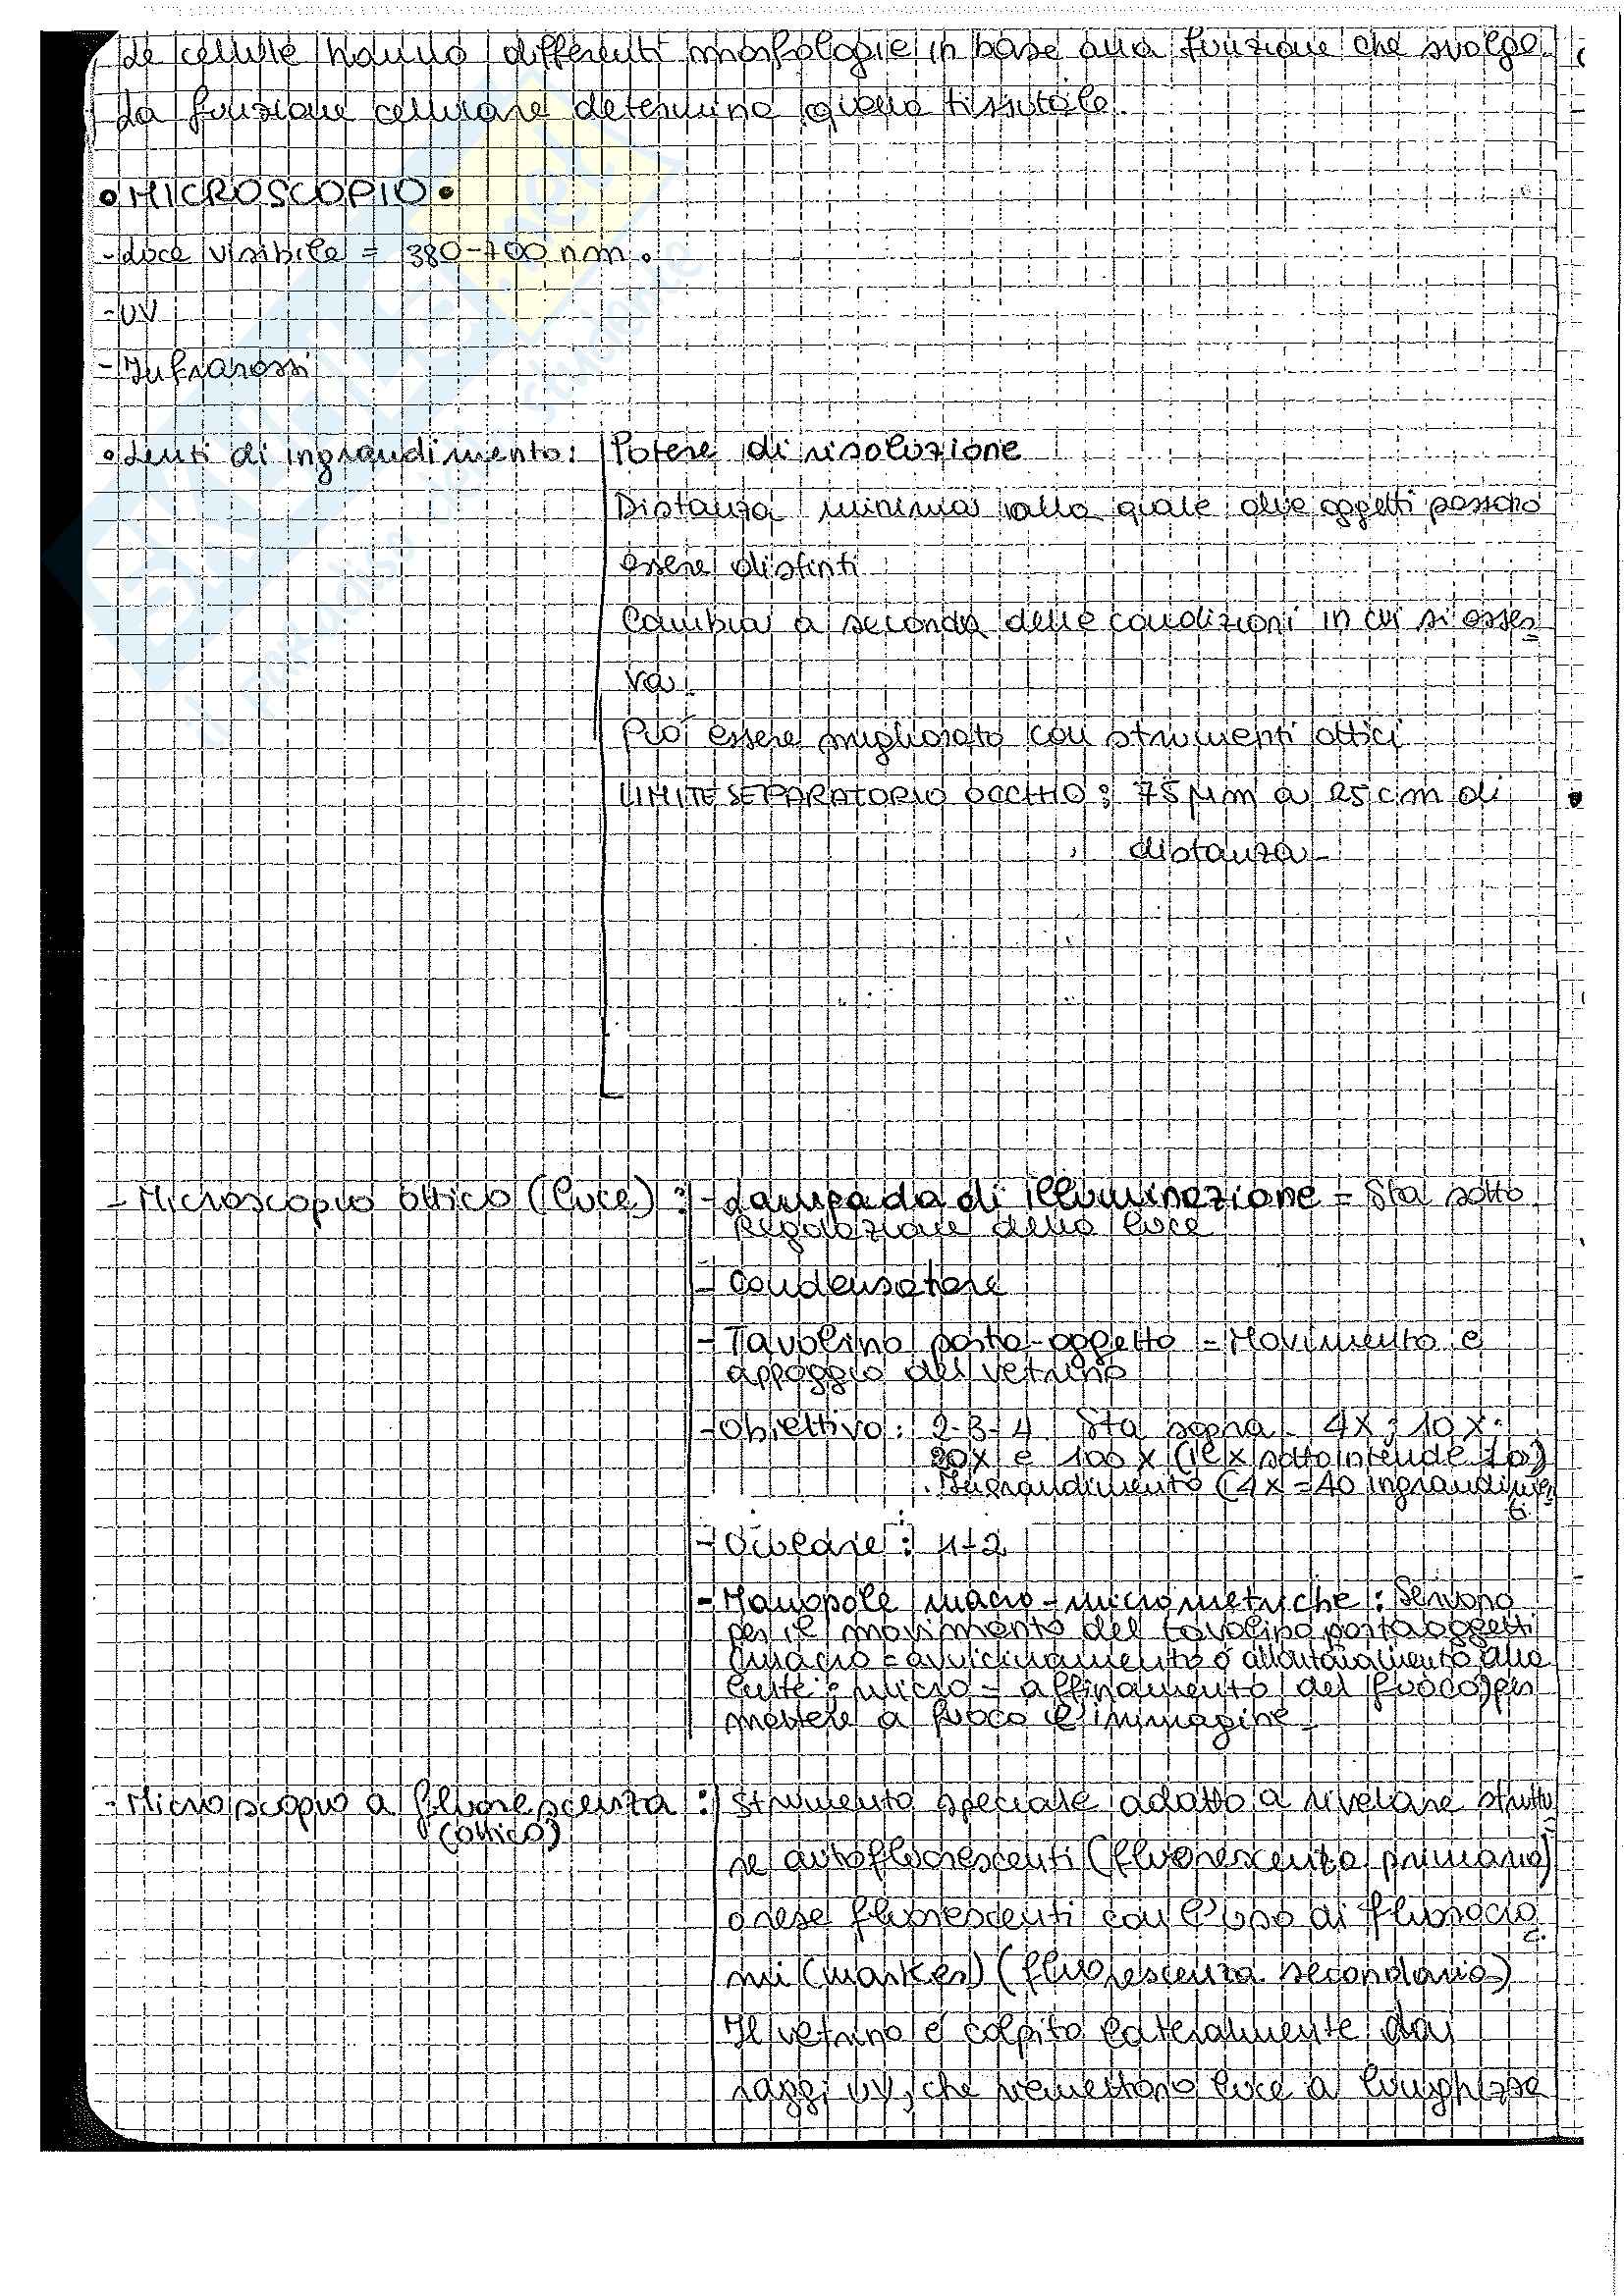 Le cellule hanno differenti morfologie in base alla funzione che svolgo.
La funzione cellulare determina quella tissutale.
• MICROSCOPIO •
- Luce visibile = 380-700 nm.
- UV
- Infrarossi
• Lenti di ingrandimento: Potere di risoluzione
Distanza minima alla quale due oggetti possono
essere distinti
Cambia a seconda delle condizioni in cui si osser
va.
Può essere migliorato con strumenti ottici
LIMITE SEPARATORIO OCCHIO: 75 μm a 25 cm di
distanza
- Microscopio ottico (luce): - Lampada di illuminazione = Sta sotto
Regolazione della luce
- Condensatore
- Tavolino porta-oggetto - Movimento e
appoggio del vetrino
- Obiettivo: 2-3-4 Sta sopra. 4x; 10x;
20x e 100x (il x sottointende 10)
Ingrandimento (4x = 40 ingrandimen
ti
- Oculare: 1-2
- Manopole macro-micrometriche: Servono
per il movimento del tavolino porta oggetti
(macro = avvicinamento o allontanamento alla
lente; micro = affinamento del fuoco) per
mettere a fuoco l'immagine.
- Microscopio a fluorescenza: Strumento speciale adatto a rivelare struttu
(ottico)
re autofluorescenti (fluorescenza primaria)
o rese fluorescenti con l'uso di fluorocro
mi (marker) (fluorescenza secondaria)
Il vetrino è colpito lateralmente dai
raggi UV, che riemettono luce a lunghezze